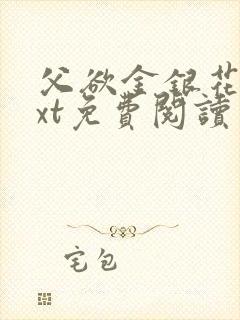 父欲金銀花
xt免費閱讀
宅包